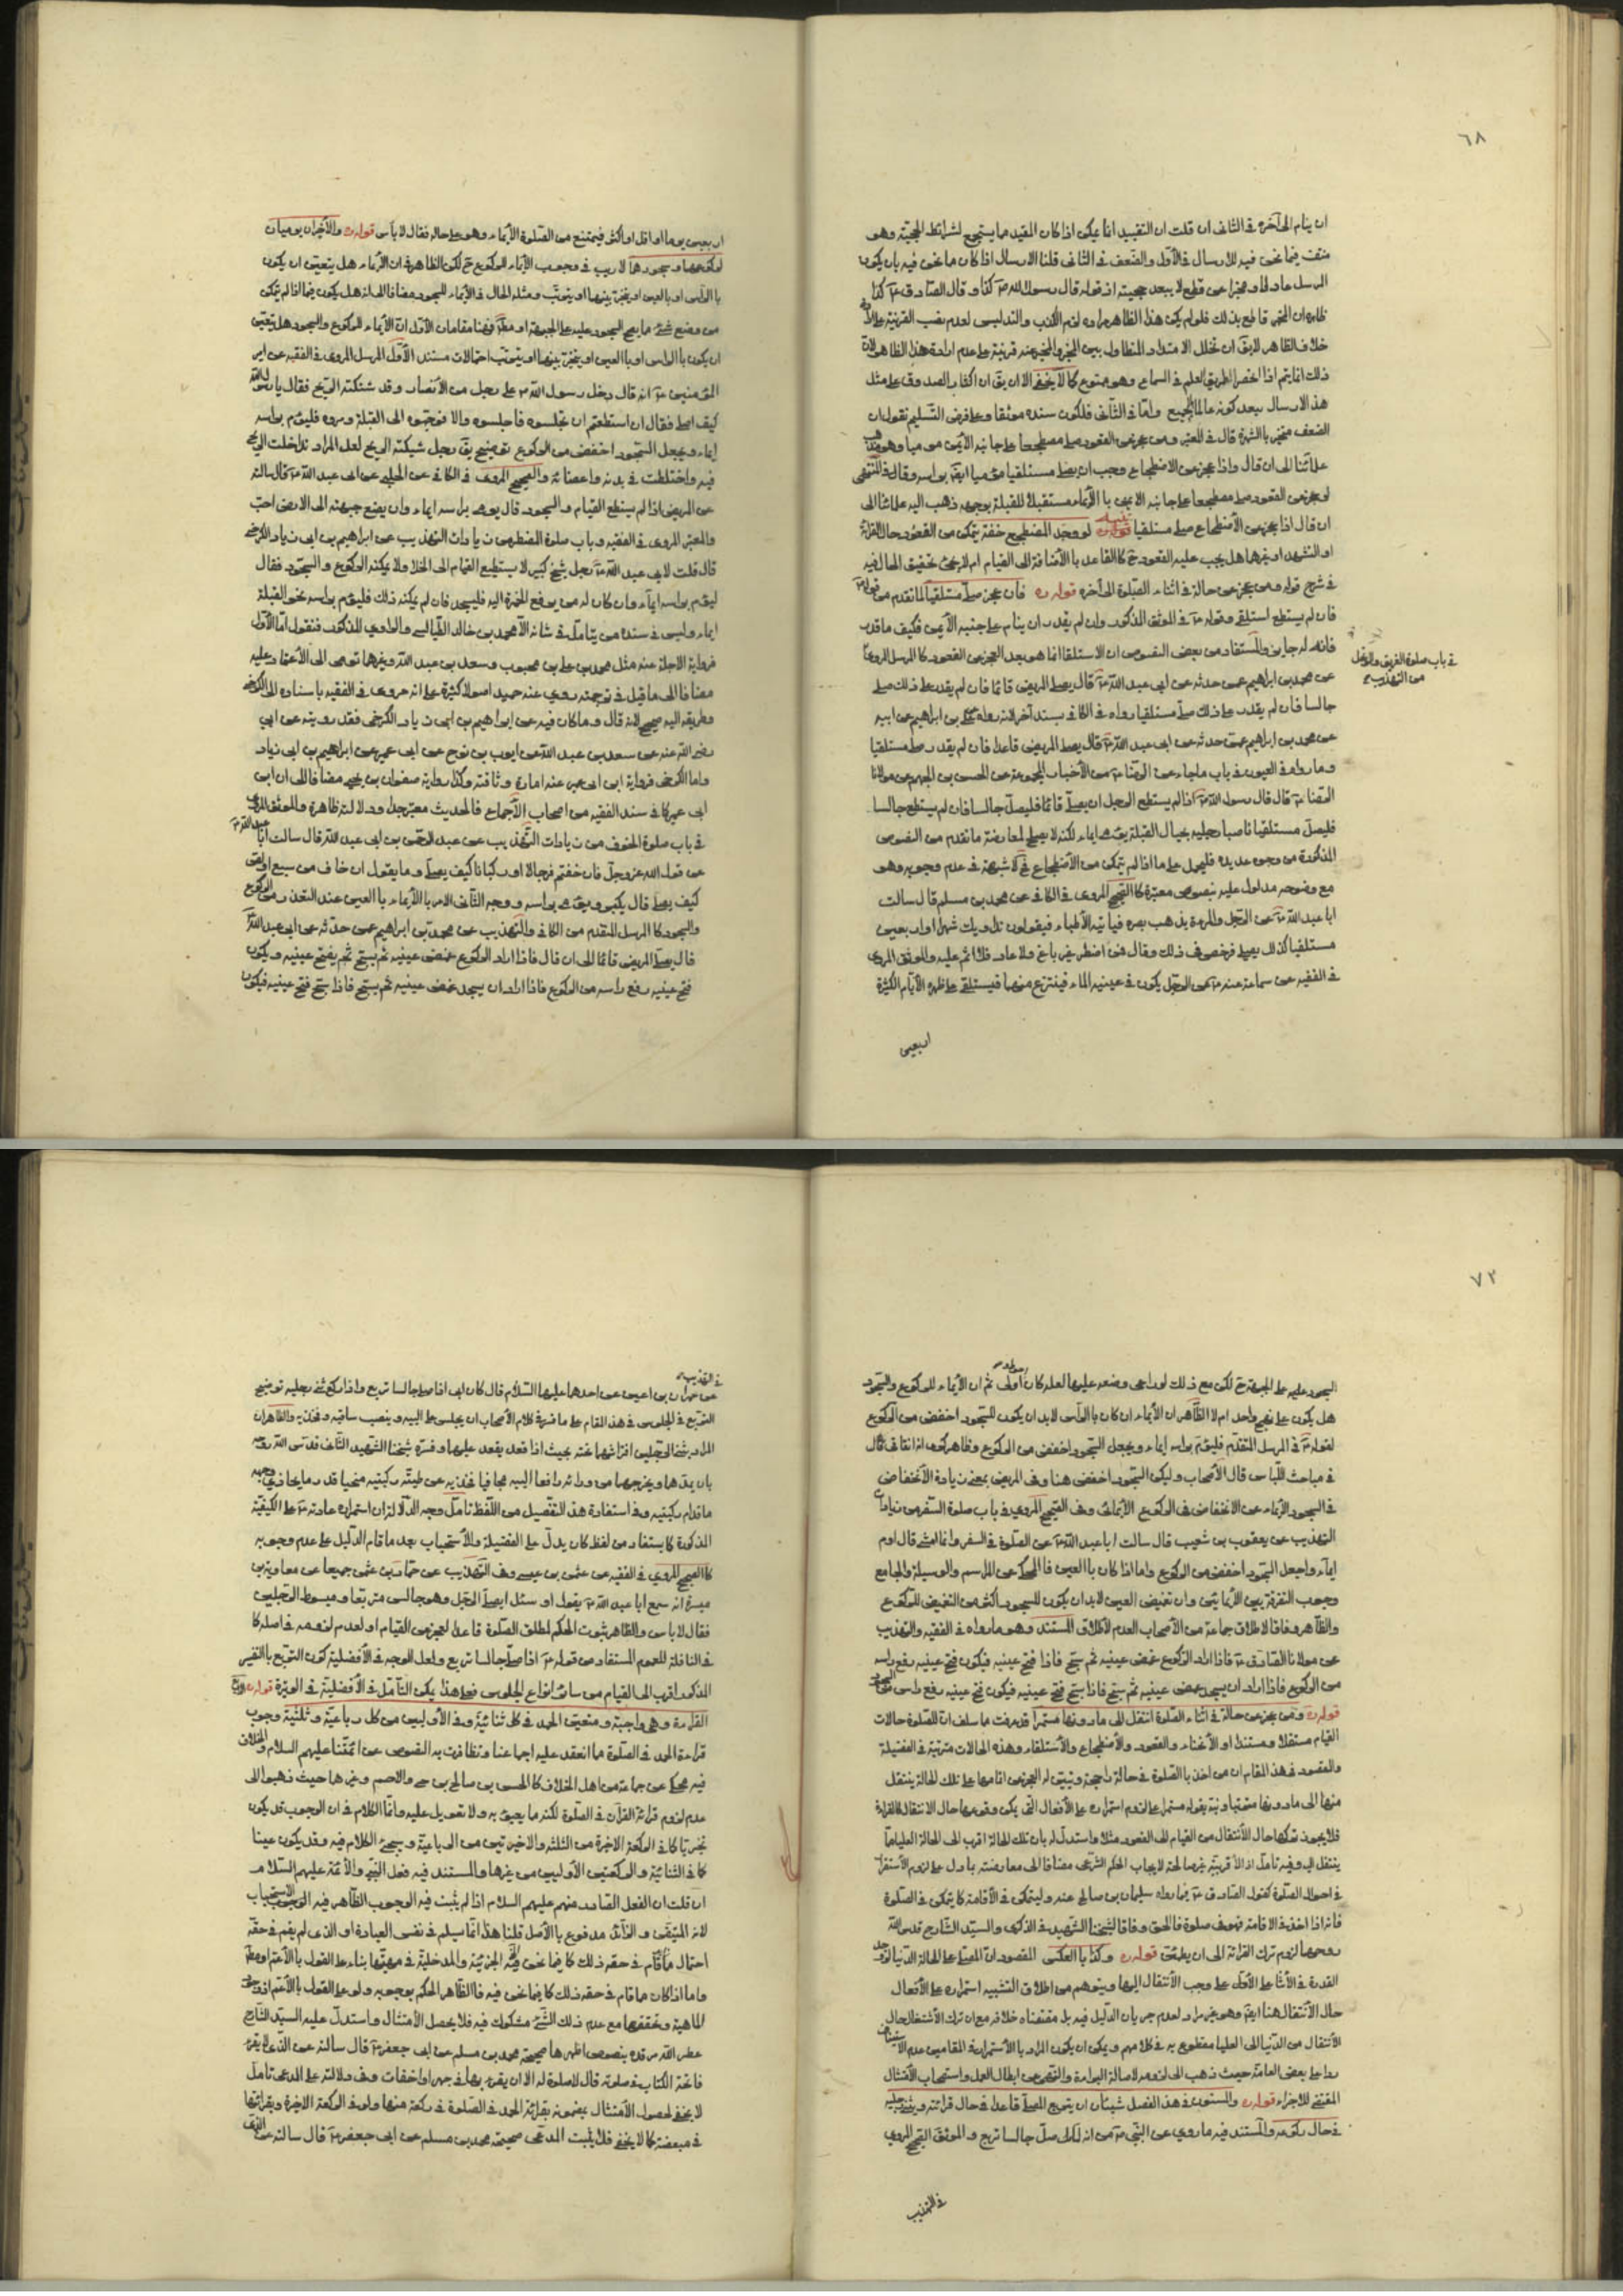 ٦٨
ان ينام الى آخره في الثاني ان قلت ان التقييد انما يمكن اذا كان المقيد مما يستجمع لشرائط الحجية وهو
منتف فيما نحن فيه للارسال في الأول والضعف في الثاني قلنا الارسال اذا كان ما نحن فيه بان يكون
المرسل عادلا ومخبرا عن قطع لا يبعد حجيته اذ قوله قال رسول الله ص كذا وقال الصادق ع كذا
ظاهر ان المخبر قاطع بذلك فلو لم يكن هذا الظاهر مراده لزم الكذب والتدليس لعدم نصب القرينة على
خلاف الظاهر لا يق ان تخلل الامتداد المتطاول بين المخبر والمخبر عنه قرينة على عدم ارادة هذا الظاهر لان
ذلك انما يتم اذا انحصر الطريق العلم في السماع وهو ممنوع كما لا يخفى الا ان يق ان اكثار الصدوق على مثل
هذا الارسال يبعد كونه عالما بالجميع واما في الثاني فلكون سنده موثقا وعلى فرض التسليم نقول ان
الضعف منجبر بالشهرة قال في المعتبر ومن عجز عن القعود صلى مضطجعا على جانبه الأيمن موميا وهو مذهب
علمائنا الى ان قال واذا عجز عن الاضطجاع وجب ان يصلي مستلقيا موميا ايضا براسه وقال في المنتهى
لو عجز عن القعود صلى مضطجعا على جانبه الايمن بالأيماء مستقبل القبلة بوجهه ذهب اليه علمائنا الى
ان قال اذا عجز عن الأضطجاع صلى مستلقيا قوله ره لو وجد المضطجع خفة يتمكن من القعود حال القرائة
او التشهد او غيرها هل يجب عليه القعود ح كالقاعد بالأضافة الى القيام ام لا يجئ تحقيق الحال فيه
في شرح قوله ومن عجز عن حالة في اثناء الصلوة الى آخره قوله ره فان عجز صلى مستلقيا لما تقدم من قوله ع
فان لم يستطع استلقى وقوله ع في الموثق المذكور وان لم يقدر ان ينام على جنبه الأيمن فكيف ما قدر
فانه له جايز والمستفاد من بعض النصوص ان الاستلقا انما هو بعد العجز عن القعود كالمرسل المروي
في باب صلوة الغريق والمتوحل
من التهذيب
عن محمد بن ابراهيم عمن حدثه عن ابى عبد الله ع قال يصلى المريض قائما فان لم يقدر على ذلك صلى
جالسا فان لم يقدر على ذلك صلى مستلقيا رواه في الكافي بسند آخر لانه رواه عن علي بن ابراهيم عن ابيه
عن محمد بن ابراهيم عمن حدثه عن ابى عبد الله ع قال يصلى المريض قاعدا فان لم يقدر صلى مستلقيا
وما رواه في العيون في باب ما جاء عن الرضا ع من الأخبار المجموعة عن الحسن بن الجهم عن مولانا
الرضا ع قال قال رسول الله ص اذا لم يستطع الرجل ان يصلى قائما فليصل جالسا فان لم يستطع جالسا
فليصل مستلقيا ناصبا رجليه بحيال القبلة يومى ايماء لكنه لا يصلح لمعارضة ما تقدم من النصوص
المذكورة من وجوه عديدة فليحمل على ما اذا لم يتمكن من الأضطجاع فح لا شبهة في عدم وجوبه وهو
مع وضوحه مدلول عليه بنصوص معتبرة كالصحيح المروي في الكافي عن محمد بن مسلم قال سالت
ابا عبد الله ع عن الرجل والمرءة يذهب بصره فياتيه الأطباء فيقولون نداويك شهرا او اربعين
مستلقيا كذلك يصلى فرخص في ذلك وقال فمن اضطر غير باغ ولا عاد فلا اثم عليه والموثق المروي
في الفقيه عن سماعة عنه ع عن الرجل يكون في عينيه الماء فينتزع منهما فيستلقى على ظهره الأيام الكثيرة
اربعين
اربعين يوما او اقل او اكثر فيمتنع من الصلوة الأيماء وهو على حاله فقال لا باس قوله ره والأخيران يوميان
لركوعهما وسجودهما لا ريب في وجوب الأيماء للركوع ح لكن الظاهر في ان الأيماء هل يتعين ان يكون
بالراس او بالعين او يتخير بينهما او يترتب ومثله الحال في الأيماء للسجود مضافا الى انه هل يكون فيما اذا لم يتمكن
من وضع شئ مما يصح السجود عليه على الجبهة او مطلقا فهنا مقامان الأول ان الأيماء للركوع والسجود هل يتعين
ان يكون بالراس او بالعين او يتخير بينهما او يترتب احتمالات مستند الأول المرسل المروي في الفقيه عن امير
المؤمنين ع انه قال دخل رسول الله ص على رجل من الأنصار وقد شبكته الريح فقال يا رسول الله
كيف اصلى فقال ان استطعتم ان تجلسوه فاجلسوه والا فوجهوه الى القبلة ومروه فليؤم براسه
ايماء ويجعل السجود اخفض من الركوع توضيح يق رجل شبكته الريح لعل المراد تداخلت الريح
فيه واختلطت في بدنه واعضائه والصحيح المروي في الكافي عن الحلبي عن ابى عبد الله ع قال سالته
عن المريض اذا لم يستطع القيام والسجود قال يومى براسه ايماء وان يضع جبهته الى الارض احب
والمعتبر المروي في الفقيه وباب صلوة المضطر من زيادات التهذيب عن ابراهيم بن ابى زياد الكرخي
قال قلت لابى عبد الله ع رجل شيخ كبير لا يستطيع القيام الى الخلا ولا يمكنه الركوع والسجود فقال
ليؤم براسه ايماء وان كان له من يرفع الخمرة اليه فليسجد فان لم يمكنه ذلك فليؤم براسه نحو القبلة
ايماء وليس في سنده من يتامل في شانه الا محمد بن خالد الطيالسي والراوي المذكور فنقول اما الأول
فرواية الاجلة عنه مثل محمد بن على بن محبوب وسعد بن عبد الله وغيرهما تومى الى الأعتماد عليه
مضافا الى ما قيل في ترجمته روي عنه حميد اصولا كثيرة على انه مروي في الفقيه باسناده الى الكرخي
وطريقه اليه صحيح لانه قال وما كان فيه عن ابراهيم بن ابى زياد الكرخي فقد رويته عن ابي
رضى الله عنه عن سعد بن عبد الله عن ايوب بن نوح عن ابى عمير عن ابراهيم بن ابى زياد
واما الكرخي فرواية ابن ابى عمير عنه امارة وثاقته وكذا رواية صفوان بن يحيى مضافا الى ان ابن
ابى عمير كما في سند الفقيه من اصحاب الأجماع فالحديث معتبر جدا ودلالته ظاهرة والموثق المروي
في باب صلوة الخوف من زيادات التهذيب عن عبد الرحمن بن ابى عبد الله قال سالت ابا عبد الله ع
عن قول الله عز وجل فان خفتم فرجالا او ركبانا كيف يصلى وما يقول ان خاف من سبع او لص
كيف يصلى قال يكبر ويومى براسه ووجه الثاني الامر بالأيماء بالعين عند التعذر من الركوع
والسجود كالمرسل المتقدم من الكافي والتهذيب عن محمد بن ابراهيم عمن حدثه عن ابى عبد الله ع
قال يصلى المريض قائما الى ان قال فاذا اراد الركوع غمض عينيه ثم يسبح ثم يفتح عينيه ويكون
فتح عينيه رفع راسه من الركوع فاذا اراد ان يسجد غمض عينيه ثم يسبح فاذا سبح فتح عينيه فيكون
٧٢
السجود عليه على الجبهة ح لكن مع ذلك لو راعى وضعه عليها لعله كان اولى ثم ان الأيماء للركوع والسجود
هل يكون على نهج واحد ام لا الظاهر ان الأيماء ان كان بالراس لا بد ان يكون للسجود اخفض من الركوع
لقوله ع في المرسل المتقدم فليؤم براسه ايماء ويجعل السجود اخفض من الركوع وظاهر كونه اتفاقى قال
في مباحث اللباس قال الأصحاب وليكن السجود اخفض هنا وفى المريض بمعنى زيادة الأنخفاض
في السجود الأيماء عن الانخفاض في الركوع الأيمائى وفى الصحيح المروي في باب صلوة السفر من زيادات
التهذيب عن يعقوب بن شعيب قال سالت ابا عبد الله ع عن الصلوة في السفر وانا امشى قال اوم
ايماء واجعل السجود اخفض من الركوع واما اذا كان بالعين فالمحكى عن المراسم والوسيلة والجامع
وجوب التفرقة بين الأيمائين وان تغميض العين لا بد ان يكون للسجود اكثر من التغميض للركوع
والظاهر وفاقا لاطلاق جماعة من الأصحاب العدم لأطلاق المستند وهو ما رواه في الفقيه والتهذيب
عن مولانا الصادق ع فاذا اراد الركوع غمض عينيه ثم سبح فاذا فتح عينيه فيكون فتح عينيه رفع راسه
من الركوع فاذا اراد ان يسجد غمض عينيه ثم سبح فاذا سبح فتح عينيه فيكون فتح عينيه رفع راس من السجود
قوله ره ومن عجز عن حالة في اثناء الصلوة انتقل الى ما دونها مستمرا قد عرفت ما سلف ان للصلوة حالات
القيام مستقلا ومستندا او الأنحناء والقعود والأضطجاع والأستلقاء وهذه الحالات مترتبة في الفضيلة
والمقصود في هذا المقام ان من اخذ بالصلوة في حالة راجحة وتبين له العجز عن اتمامها على تلك الحالة ينتقل
منها الى ما دونها متمما ونبه بقوله مستمرا على لزوم استمراره على الأفعال التى يمكن وقوعها حال الانتقال كالقرائة
فلا يجوز تركها حال الأنتقال من القيام الى القعود مثلا واستدل له بان تلك الحالة اقرب الى الحالة العليا مما
ينتقل اليه وفيه تامل اذ الأقربية غير صالحة لايجاب الحكم الشرعى مضافا الى معارضته بما دل على لزوم الأستقرار
في احوال الصلوة كقول الصادق ع فيما رواه سليمان بن صالح عنه وليتمكن في الأقامة كما يتمكن في الصلوة
فانه اذا اخذ في الاقامة فهو في صلوة فالحق وفاقا لشيخنا الشهيد في الذكرى والسيد الشارح قدس الله
روحهما لزوم ترك القرائة الى ان يطمئن قوله ره وكذا بالعكس المقصود ان المصلى على الحالة الدنيا لو وجد
القدرة في الأثنا على الأولى على وجب الأنتقال اليها ويتوهم من اطلاق التشبيه استمراره على الأفعال
حال الأنتقال هنا ايضا وهو غير مراد لعدم جريان الدليل فيه بل مقتضاه خلافه مع ان ترك الأشتغال حال
الأنتقال من الدنيا الى العليا مقطوع به في كلامهم ويمكن ان يكون المراد بالأستمرار في المقامين عدم الاستيناف
ردا على بعض العامة حيث ذهب الى لزومه لاصالة البرائة والنهى عن ابطال العمل واستصحاب الأمتثال
المقتضى للاجزاء قوله ره والمسنون في هذا الفصل شيئان ان يتربع المصلى قاعدا في حال قرائته ويثنى رجليه
في حال ركوعه والمستند فيه ما روي عن النبى ص من انه لما صلى جالسا تربع والموثق الصحيح المروي
في التهذيب
في التهذيب
عن حمران بن اعين عن احدهما عليهما السلام قال كان ابى اذا صلى جالسا تربع واذا ركع ثنى رجليه توضيح
التربع في الجلوس في هذا المقام على ما فسره كلام الأصحاب ان يجلس على اليتيه وينصب ساقيه وفخذيه والظاهر ان
المراد بثنى الرجلين افتراشهما تحته بحيث اذا قعد يقعد عليهما وفسره شيخنا الشهيد الثانى قدس الله روحه
بان يمدهما ويخرجهما من ورائه رافعا اليتيه مجافيا فخذيه عن طية ركبتيه منحنيا قدر ما يحاذى وجهه
ما قدام ركبتيه وفى استفادة هذا التفصيل من اللفظ تامل وجه الدلالة ان استمرار عادته ع على الكيفية
المذكورة كما يستفاد من لفظ كان يدل على الفضيلة والأستحباب بعد ما قام الدليل على عدم وجوبه
كالصحيح المروي في الفقيه عن عثمن بن عيسى وفى التهذيب عن حماد بن عثمن جميعا عن معاوية بن
ميسرة انه سمع ابا عبد الله ع يقول او سئل ايصلى الرجل وهو جالس متربعا ومبسوط الرجلين
فقال لا باس والظاهر ثبوت الحكم لمطلق الصلوة قاعدا لعجز عن القيام او لعدم لزومه في اصله كما
في النافلة للعموم المستفاد من قوله ع اذا صلى جالسا تربع ولعل الوجه في الأفضلية كون التربع بالتفسير
المذكور اقرب الى القيام من سائر انواع الجلوس فعلى هذا يمكن التامل في الأفضلية في الوتيرة قوله ره الرابع
القراءة وهى واجبة ومتعين الحمد في كل ثنائية وفى الأوليين من كل رباعية وثلثية وجوب
قراءة الحمد في الصلوة مما انعقد عليه اجماعنا وتظافرت به النصوص عن ائمتنا عليهم السلام والخلاف
فيه محكى عن جماعة من اهل الخلاف كالحسن بن صالح بن حى والاصم وغيرهما حيث ذهبوا الى
عدم لزوم قرائة القرآن في الصلوة لكنه مما يعبؤ به ولا تعويل عليه وانما الكلام في ان الوجوب قد يكون
تخييريا كما في الركعة الاخيرة من الثلثة والاخيرتين من الرباعية وسيجئ الكلام فيه وقد يكون عينا
كما في الثنائية والركعتين الأوليين من غيرها والمستند فيه فعل النبى والأئمة عليهم السلام
ان قلت ان الفعل الصادر منهم عليهم السلام اذا لم يثبت فيه الوجوب الظاهر فيه الاستحباب
لانه المتيقن والزائد مدفوع بالأصل قلنا هذا انما يسلم في نفس العبادة او الذى لم يقم في حقه
احتمال ما قام في حقه ذلك كما فيما نحن فيه الجزئية والمدخلية في مهيتها بناء على القول بالأعم او مطلقا
واما اذا كان ما قام في حقه ذلك كما فيما نحن فيه فالظاهر الحكم بوجوبه ولو على القول بالأعم اذ وجود
الماهية وتحققها مع عدم ذلك الشئ مشكوك فيه فلا يحصل الأمتثال واستدل عليه السيد الشارح
عطر الله مرقده بنصوص اظهرها صحيحة محمد بن مسلم عن ابى جعفر ع قال سالته عن الذى لا يقرء
فاتحة الكتاب في صلوته قال لا صلوة له الا ان يقرء بها في جهر او اخفات وفى دلالته على المدعى تامل
لا يخفى لحصول الأمتثال بمضمونه بقرائة الحمد في الصلوة في ركعة منها ولو في الركعة الاخيرة وبقرائتها
في مبعضة كما لا يخفى فلا يثبت المدعى صحيحة محمد بن مسلم عن ابى جعفر ع قال سالته عن الذى